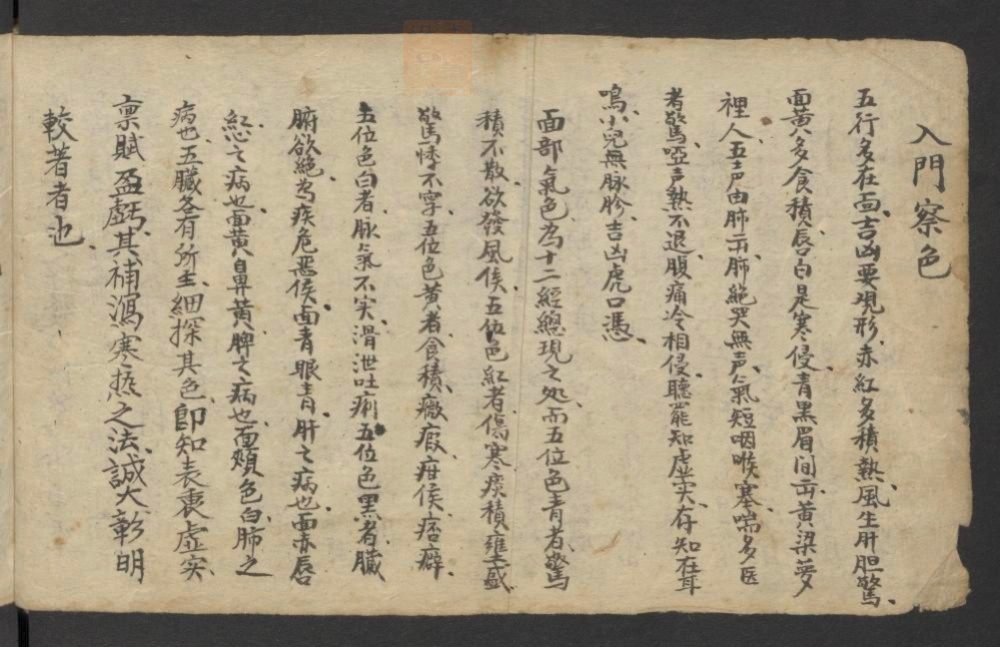 入門察色
五行多在面、吉凶要現形、赤紅多積熱、風生肝胆驚、
面黄多食積、唇白是寒侵、青黑眉间出、黄梁夢
裡人、五声由肺出、肺絶哭無声、氣短咽喉塞、喘多医
者驚、啞声熱不退、腹痛冷相侵、聽罷知虚实、存知在耳
鳴、小兒無脉胗、吉凶虎口憑、
面部氣色、為十二經總現之処、而五位色青者、驚
積不散、欲發風侯、五位色紅者、傷寒痰積壅盛
驚悸不寕、五位色黄者、食積、癥瘕、疳侯、痞癖、
五位色白者、脉氣不实、滑泄吐痢、五位色黑者、臟
腑欲絶、為疾危惡侯、面青眼青、肝之病也、面赤唇
紅、心之病也、面黄鼻黄、脾之病也、面頰色白、肺之
病也、五臟各有所主、細探其色、即知表裏虚实、
禀賦盈虧、其補瀉寒热之法、誠大彰明
較著者也、